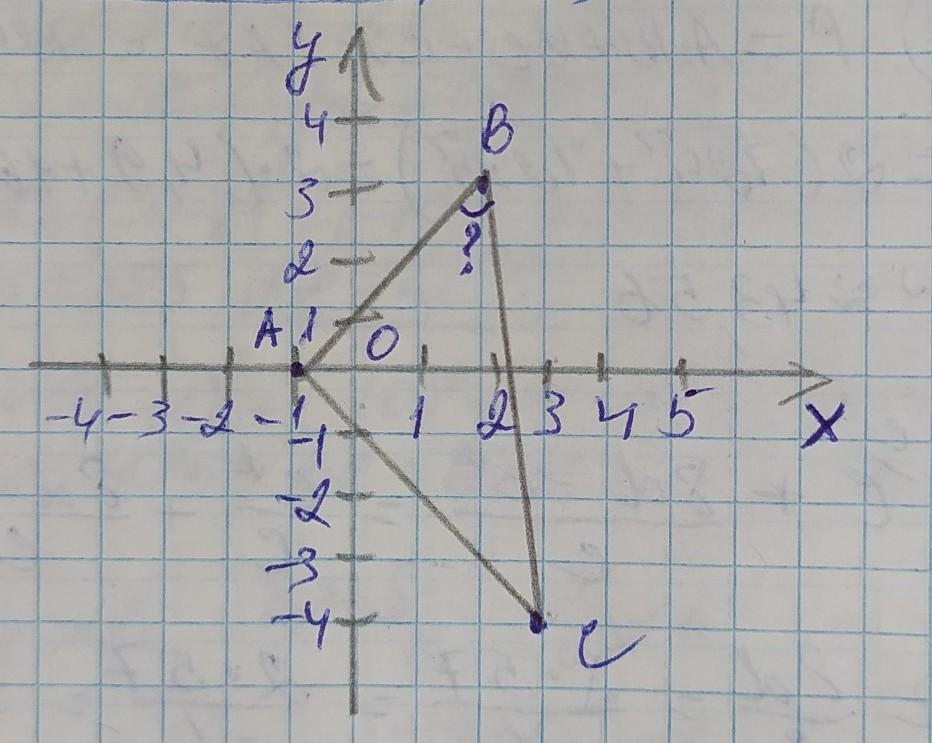 y
4
B
3
2
?
A 1 O
-4 -3 -2 -1 1 2 3 4 5 X
-1
-2
-3
-4
C